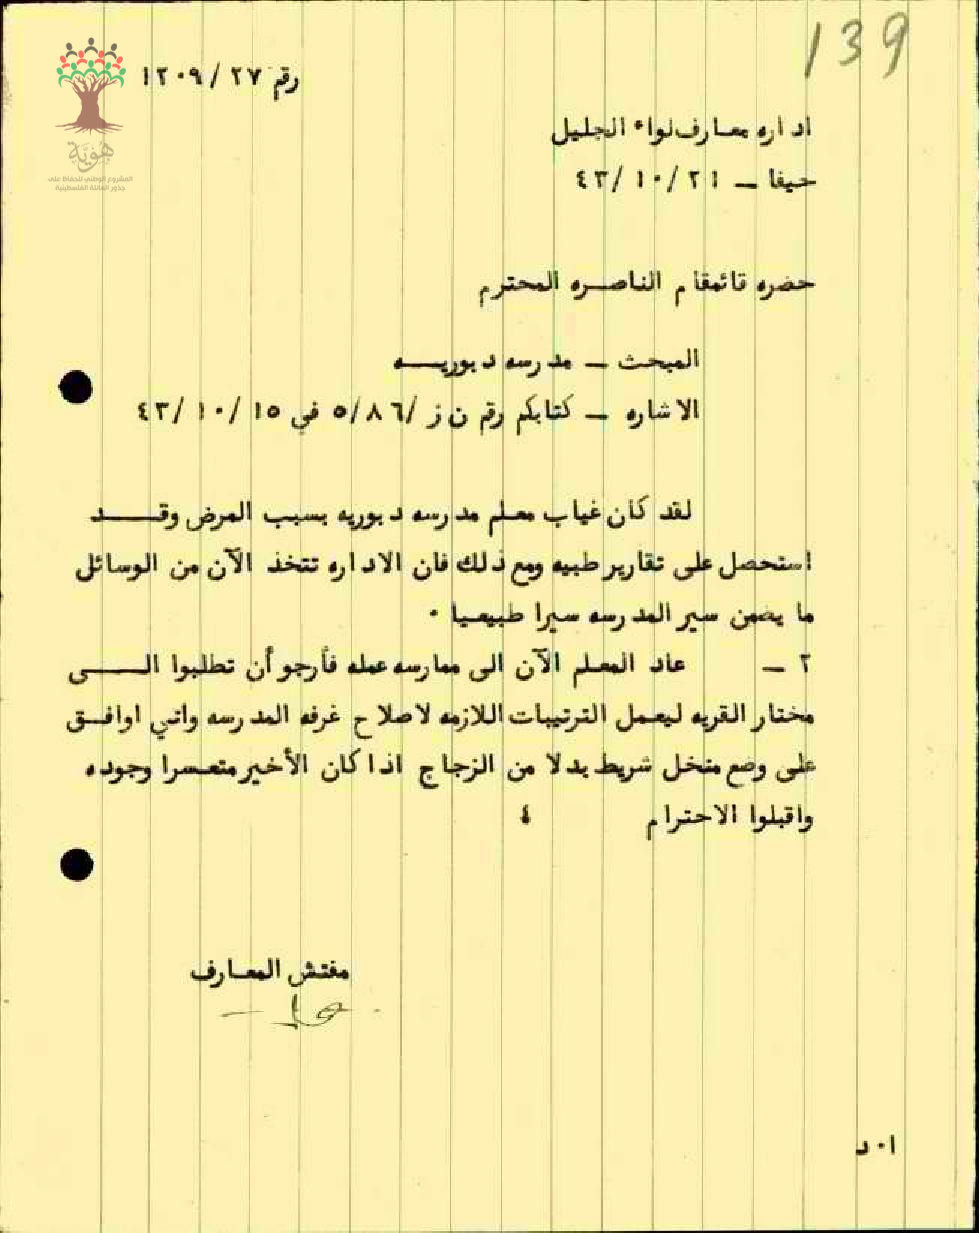 139
رقم ٢٧/ ١٢٠٩
هوية
المشروع الوطني للحفاظ على
جذور العائلة الفلسطينية
اداره معارف لواء الجليل
حيفا – ٢١/ ١٠/ ٤٣
حضره قائمقام الناصره المحترم
المبحث – مدرسه دبوريه
الاشاره – كتابكم رقم ن ز /٥/٨٦ في ١٥/ ١٠/ ٤٣
لقد كان غياب معلم مدرسه دبوريه بسبب المرض وقد
استحصل على تقارير طبيه ومع ذلك فان الاداره تتخذ الآن من الوسائل
ما يضمن سير المدرسه سيرا طبيعيا ٠
٢ – عاد المعلم الآن الى ممارسه عمله فأرجو أن تطلبوا الى
مختار القريه ليعمل الترتيبات اللازمه لاصلاح غرفه المدرسه واني اوافق
على وضع منخل شريط بدلا من الزجاج اذا كان الأخير متعسرا وجوده
واقبلوا الاحترام ٤
مفتش المعارف
ا٠د